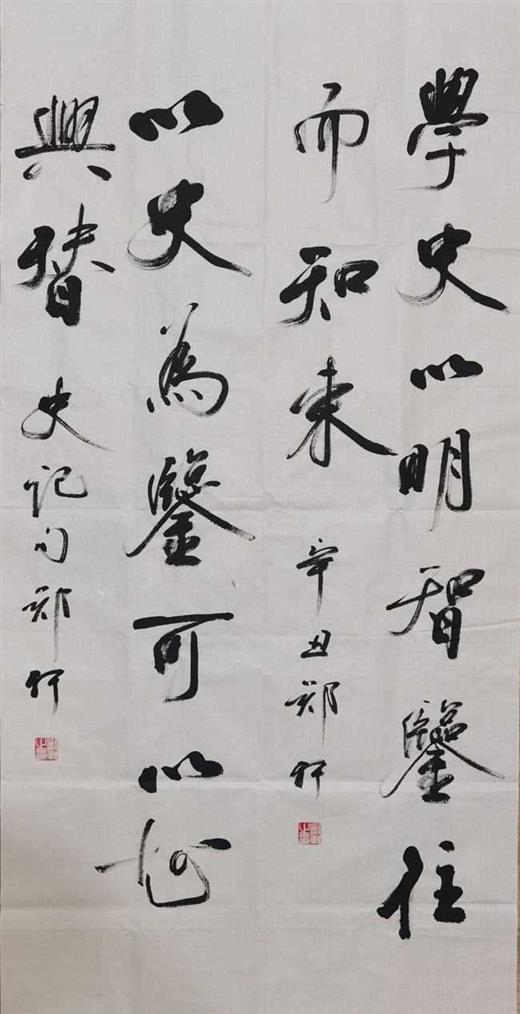 學史以明智鑒往
而知來 辛丑 鄭
以史為鑒可以知
興替 史記句 鄭